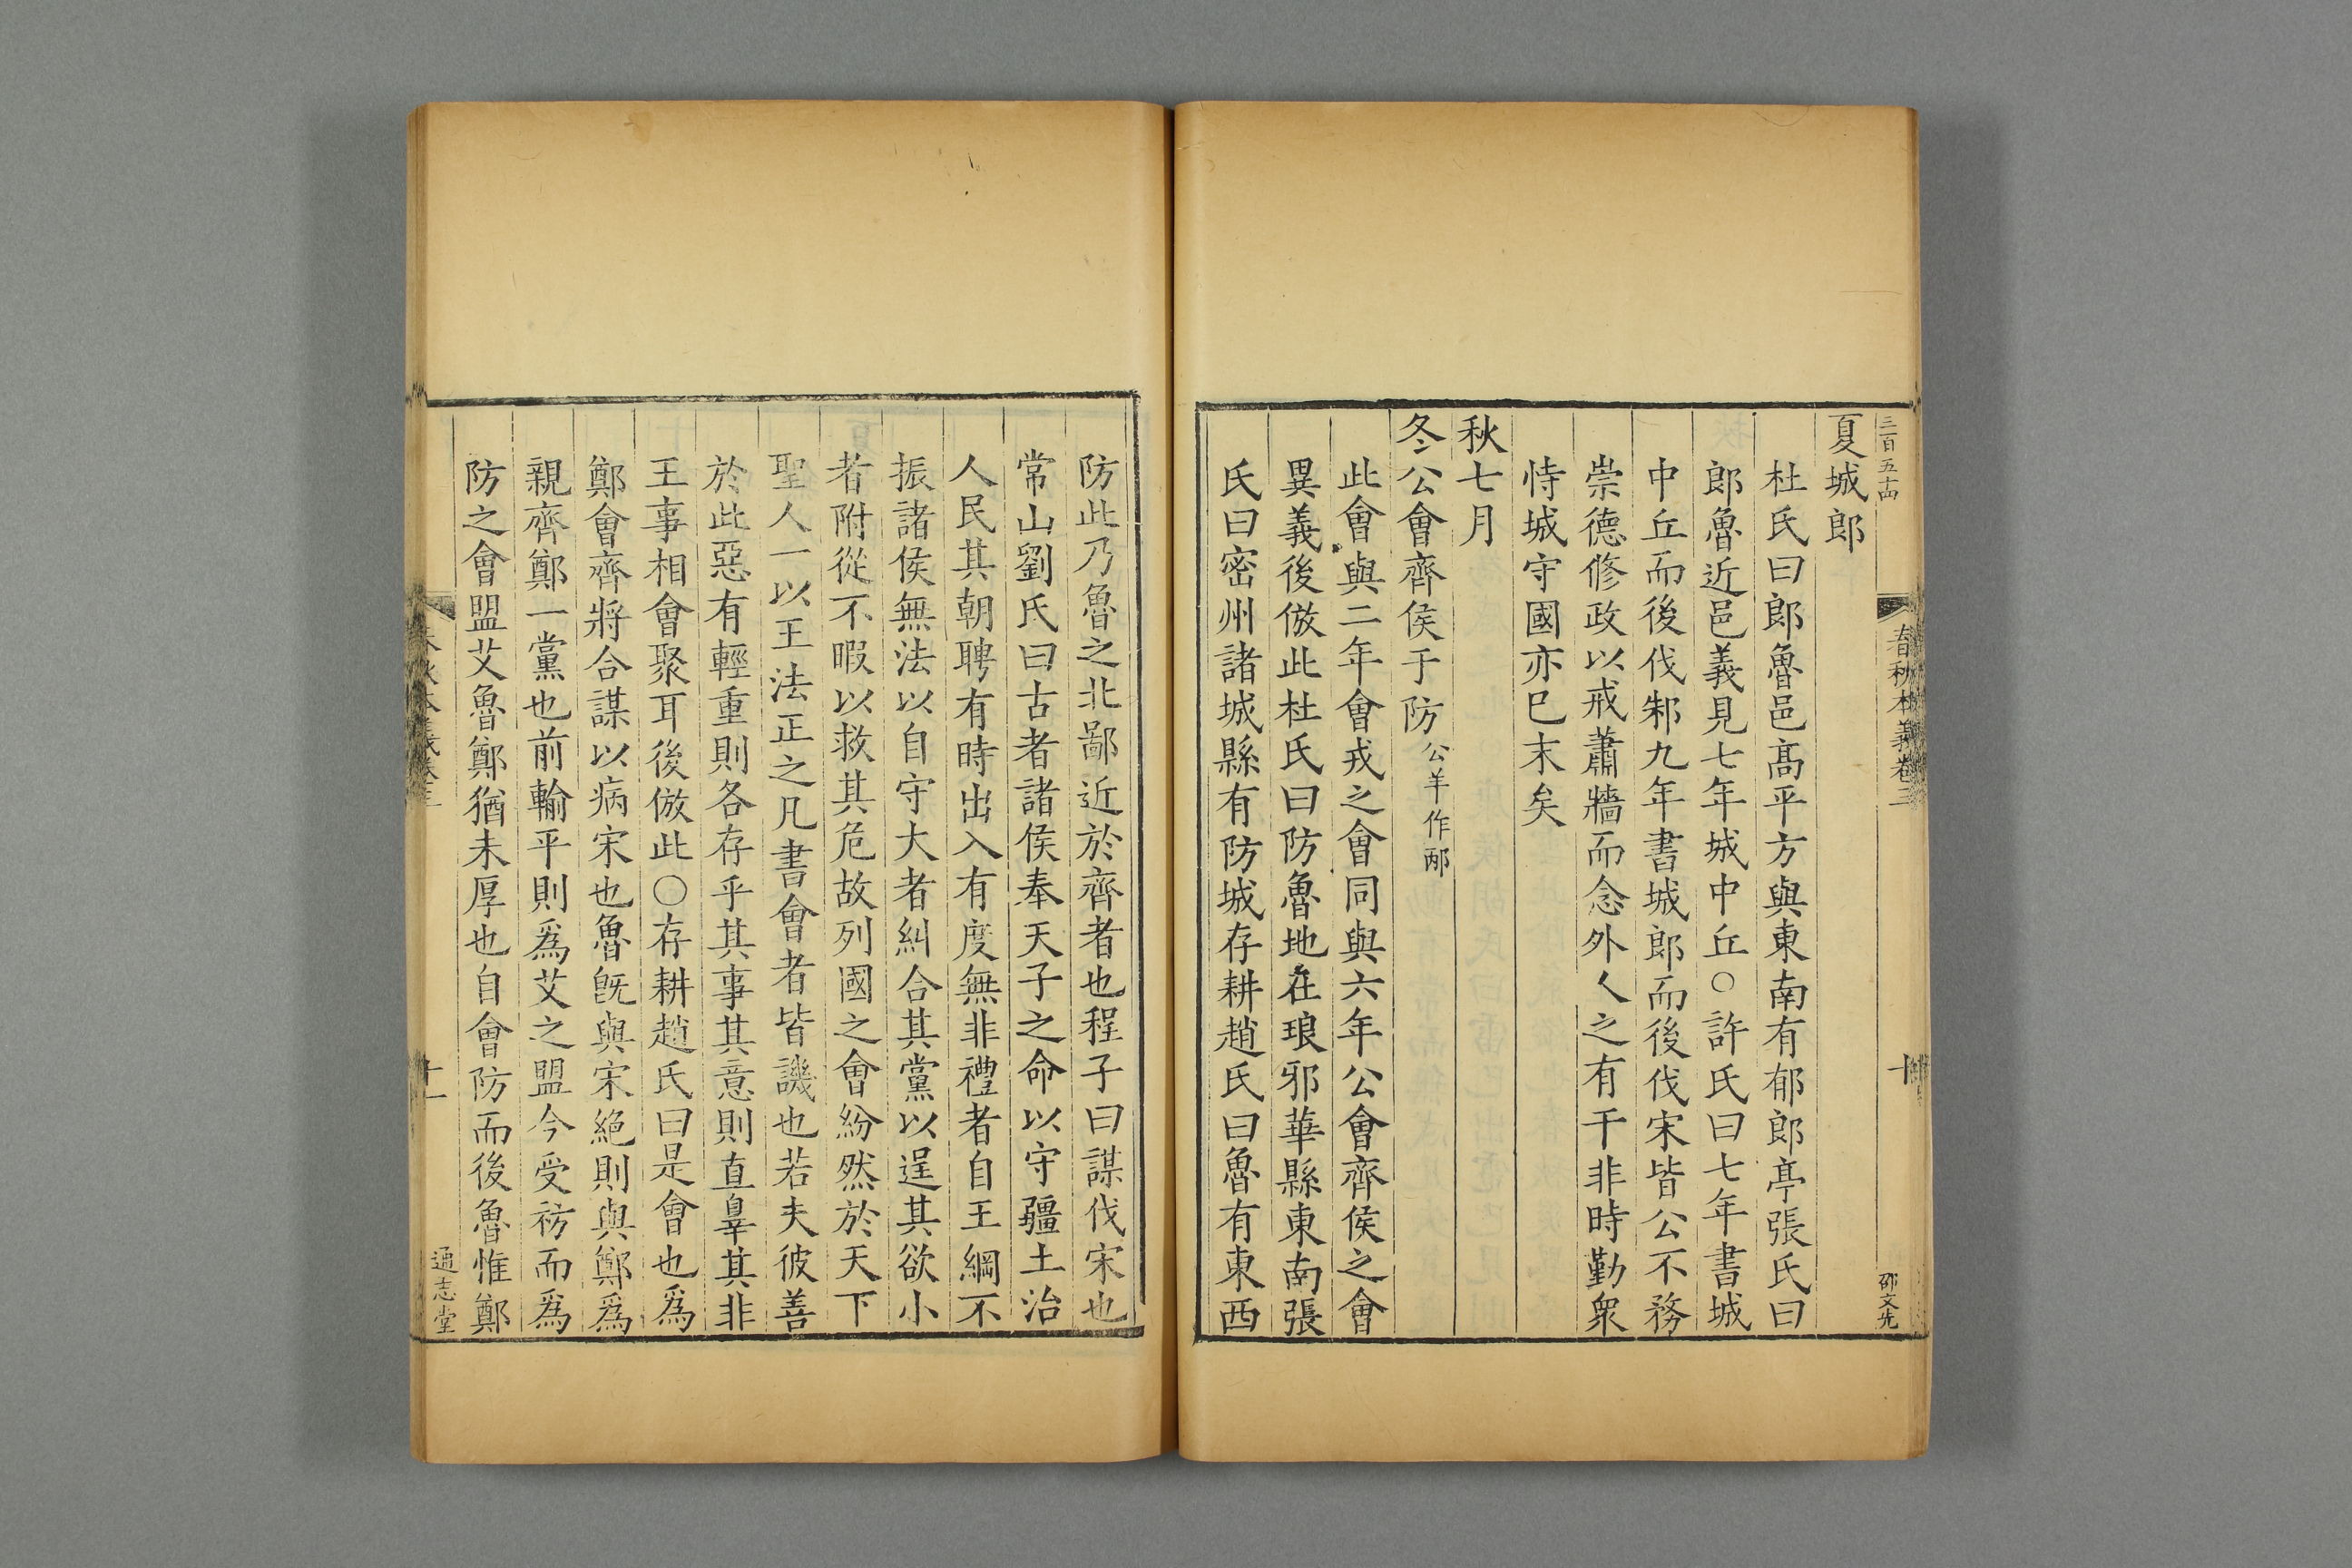 三百五十四
春秋本義卷三
十
邵文先
夏城郎
杜氏曰郎魯邑髙平方與東南有郁郎亭張氏曰
郎魯近邑義見七年城中丘○許氏曰七年書城
中丘而後伐邾九年書城郎而後伐宋皆公不務
崇德修政以戒蕭牆而念外人之有干非時勤衆
恃城守國亦已末矣
秋七月
冬公會齊侯于防公羊作邴
此會與二年會戎之會同與六年公會齊侯之會
異義後倣此杜氏曰防魯地在琅邪華縣東南張
氏曰密州諸城縣有防城存耕趙氏曰魯有東西
防此乃魯之北鄙近於齊者也程子曰謀伐宋也
常山劉氏曰古者諸侯奉天子之命以守疆土治
人民其朝聘有時出入有度無非禮者自王綱不
振諸侯無法以自守大者糾合其黨以逞其欲小
者附從不暇以救其危故列國之會紛然於天下
聖人一以王法正之凡書會者皆譏也若夫彼善
於此惡有輕重則各存乎其事其意則直辠其非
王事相會聚耳後倣此○存耕趙氏曰是會也為
鄭會齊將合謀以病宋也魯旣與宋絕則與鄭爲
親齊鄭一黨也前輸平則爲艾之盟今受祊而爲
防之會盟艾魯鄭猶未厚也自會防而後魯惟鄭
十一
通志堂